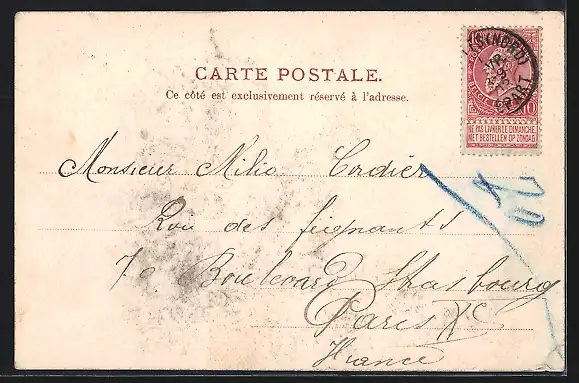 CARTE POSTALE.
Ce côté est exclusivement réservé à l'adresse.
(NORD)
DÉPART
10
NE PAS LIVRER LE DIMANCHE
NIET BESTELLEN OP ZONDAG
Monsieur Milio Cordier
Roi des feignants
70 Boulevard Strasbourg
Paris Xe
France